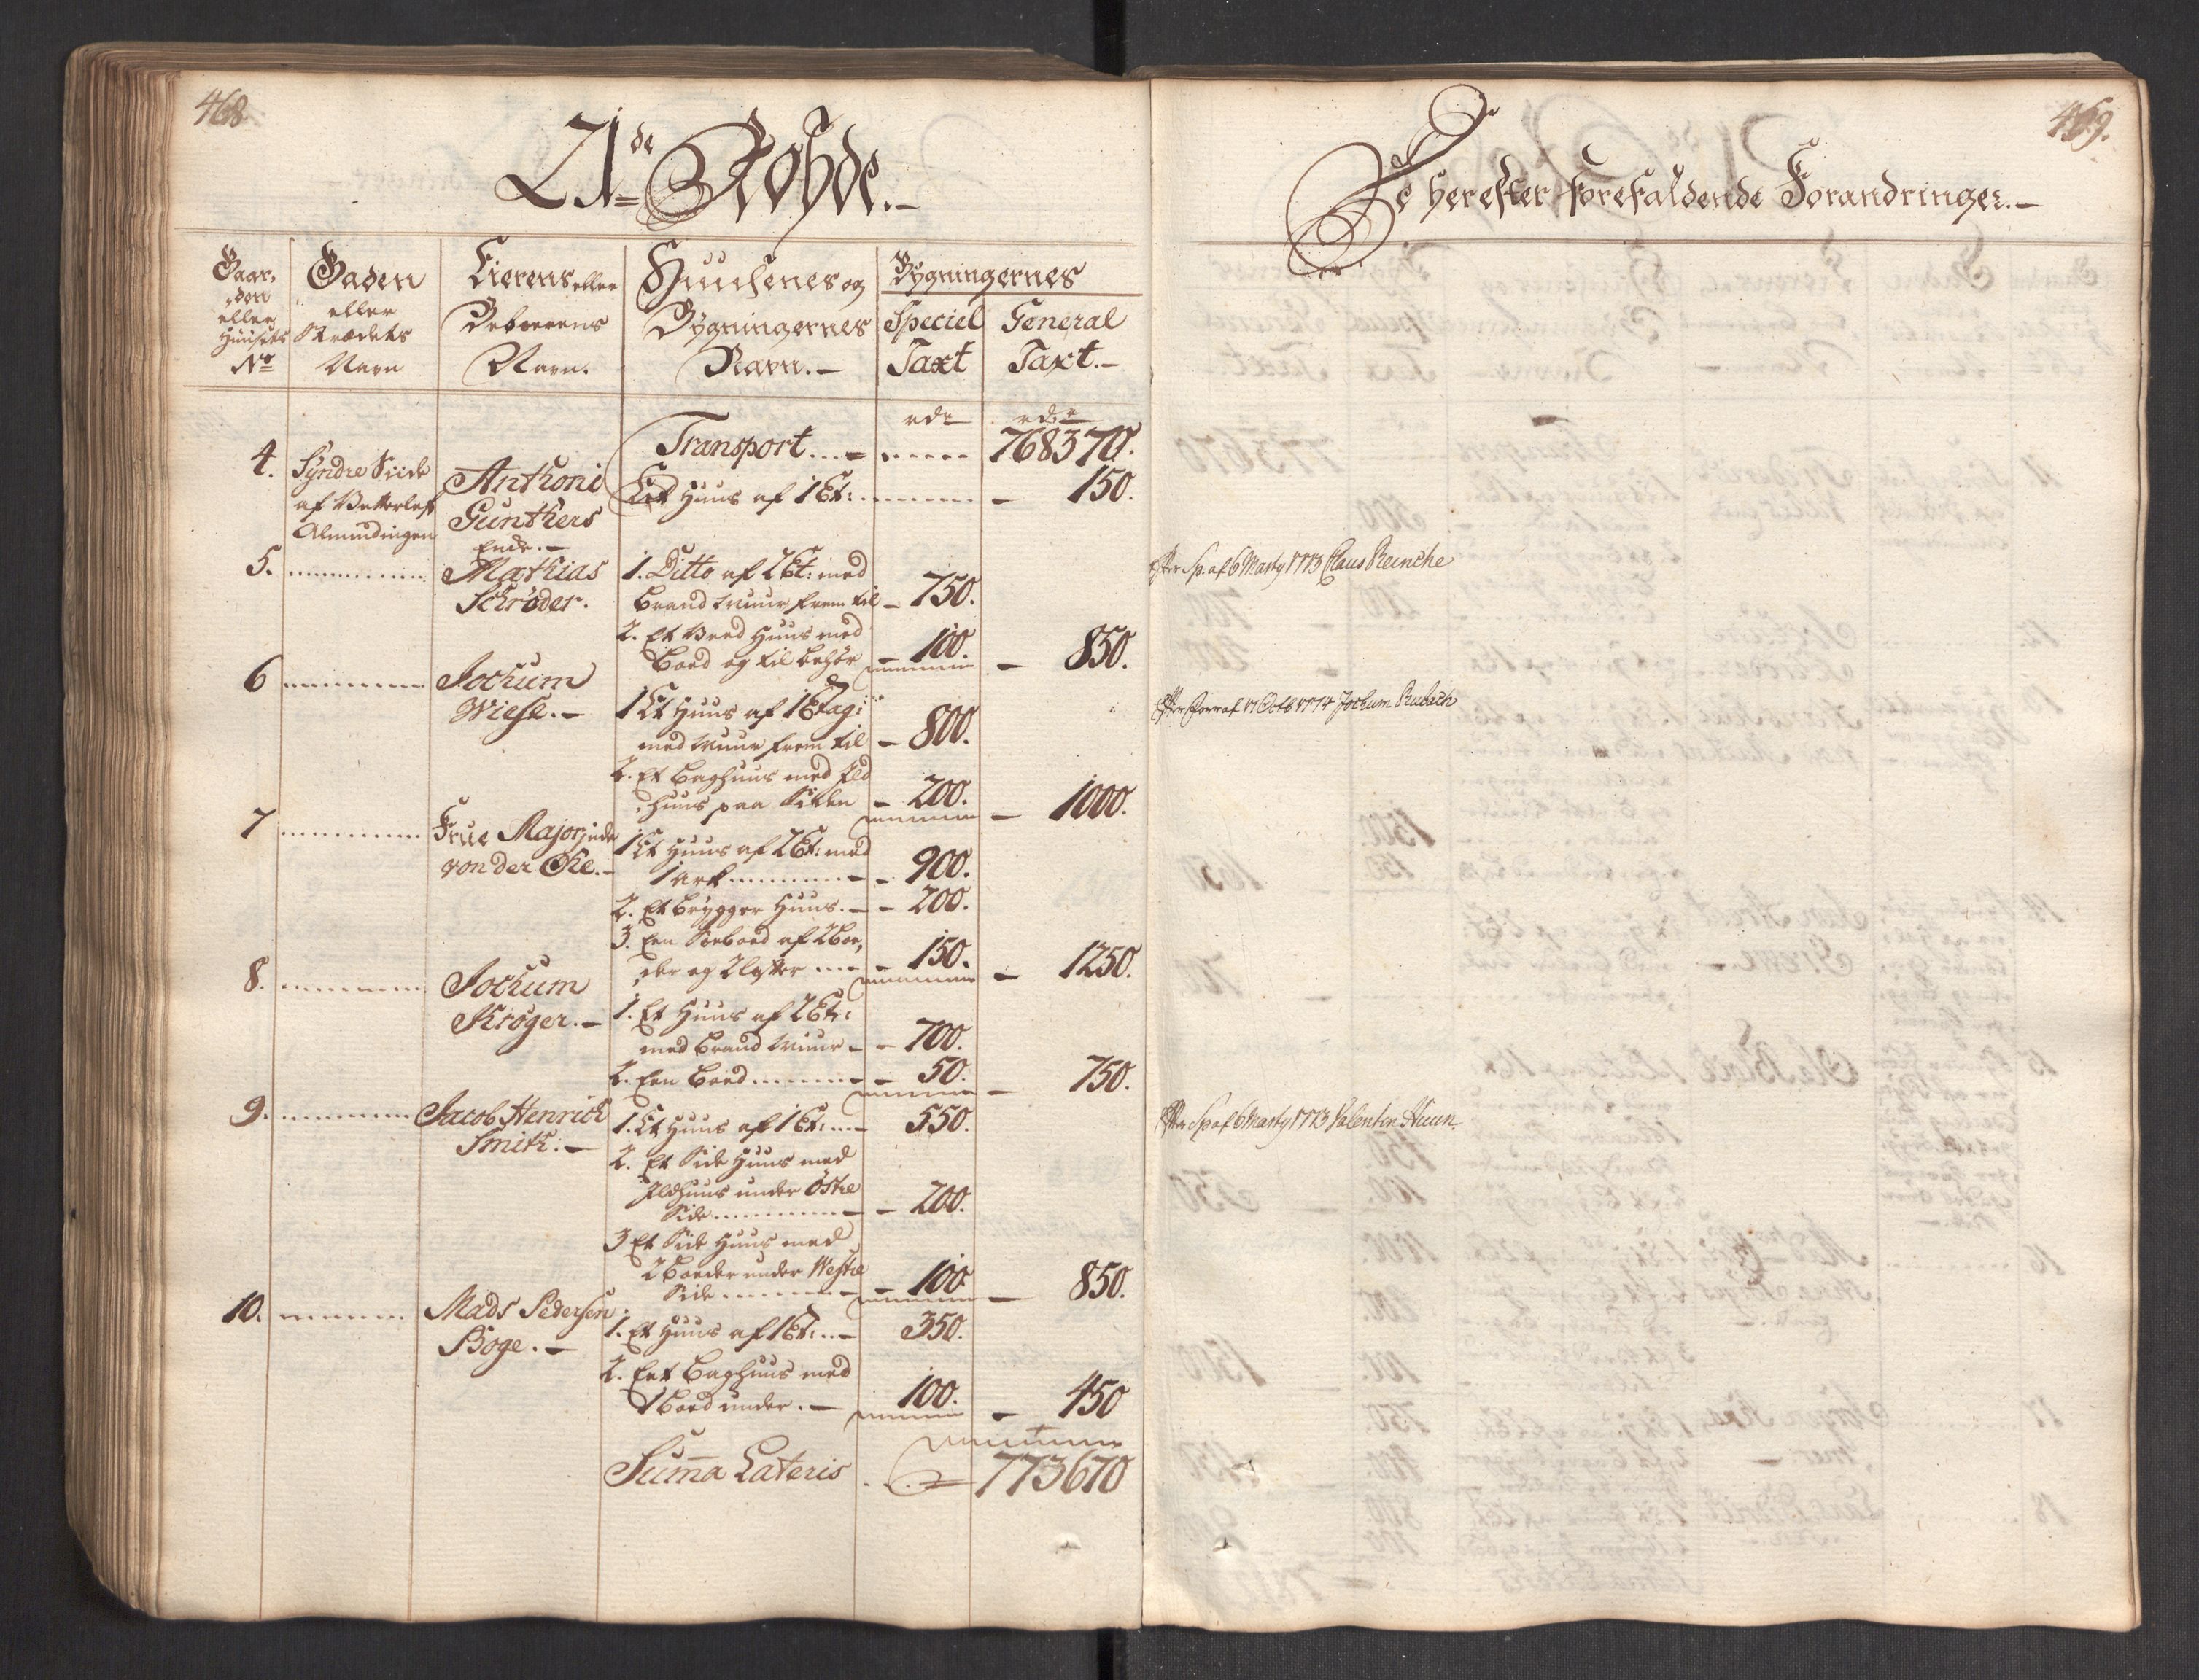 468.
21de Rohde.
Gaar-
den
eller
Huusets
No
Gaden
eller
Strædets
Navn
Eierens eller
Beboerens
Navn.
Huusenes og
Bygningernes
Navn.
Bygningernes
Speciel
Taxt
General
Taxt.
rdr
rdr
Transport
768370.
4.
Syndre Siide
af Vetterlefs
Almindingen
Anthoni
Gunthers
Enke.
Eet Huus af 1 Et:
150.
5.
Mathias
Schröder.
1. Ditto af 2 Et: med
Brand Muur frem til
750.
2. Et Veed Huus med
Boed og til behør
100.
850.
6
Jochum
Wiese.
1 Et Huus af 1 Etag:
med Muur frem til
800.
2. Et Baghuus med Ild
huus paa Siden
200.
1000.
7
Frue Majorinde
von der Ohe.
1 Et Huus af 2 Et: med
1 ark
900.
2. Et Brygger Huus.
200.
3. Een Søeboed af 2 Boe-
der og 2 lofter
150.
1250.
8.
Jochum
Kröger.
1. Et Huus af 2 Et:
med Brand Muur
700.
2. Een Boed
50.
750.
9.
Jacob Henrich
Smith.
1. Et Huus af 1 Et:
550.
2. Et Side Huus med
Ildhuus under Østre
Side
200.
3 Et Side Huus med
2 Boeder under Westre
Side
100
850.
10.
Mads Pedersen
Boge.
1. Et Huus af 1 Et:
350.
2. Eet Baghuus med
1 Boed under.
100.
450
Suma Lateris
773670
469.
De herefter forefaldende Forandringer.
Efter Sp: af 6 Marty 1773 Claus Reinche
Efter Forr: af 17 Octb 1774 Jochum Rubach
Efter Sp af 6 Marty 1773 Valentin Huun